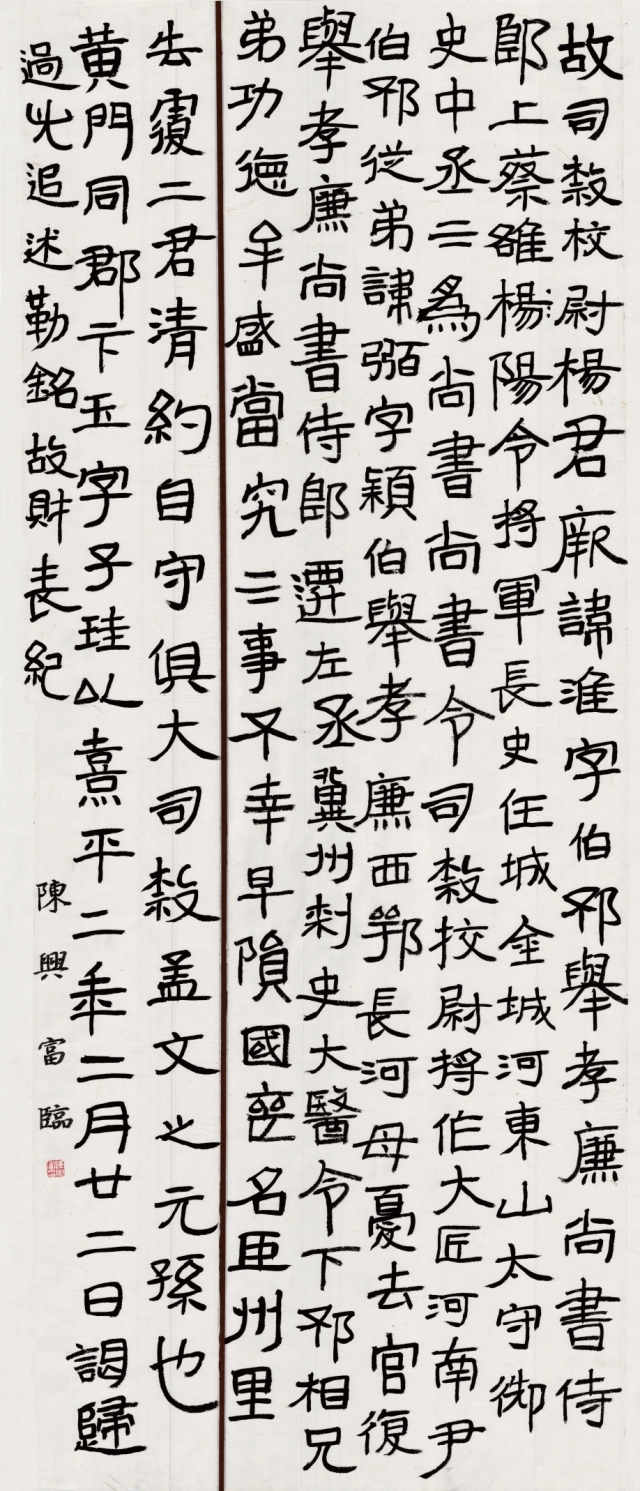 故司隸校尉楊君厥諱淮字伯邳舉孝廉尚書侍
郎上蔡雒楊陽令將軍長史任城金城河東山太守御
史中丞三為尚書尚書令司隸挍尉將作大匠河南尹
伯邳從弟諱弼字穎伯舉孝廉西鄂長河母憂去官復
舉孝廉尚書侍郎遷左丞冀州刺史大醫令下邳相兄
弟功德牟盛當究三事不幸早隕國喪名臣州里
去覆二君清約自守俱大司隸孟文之元孫也
黃門同郡卞玉字子珪以熹平二年二月廿二日謁歸
過此追述勒銘故財表紀
陳興富臨